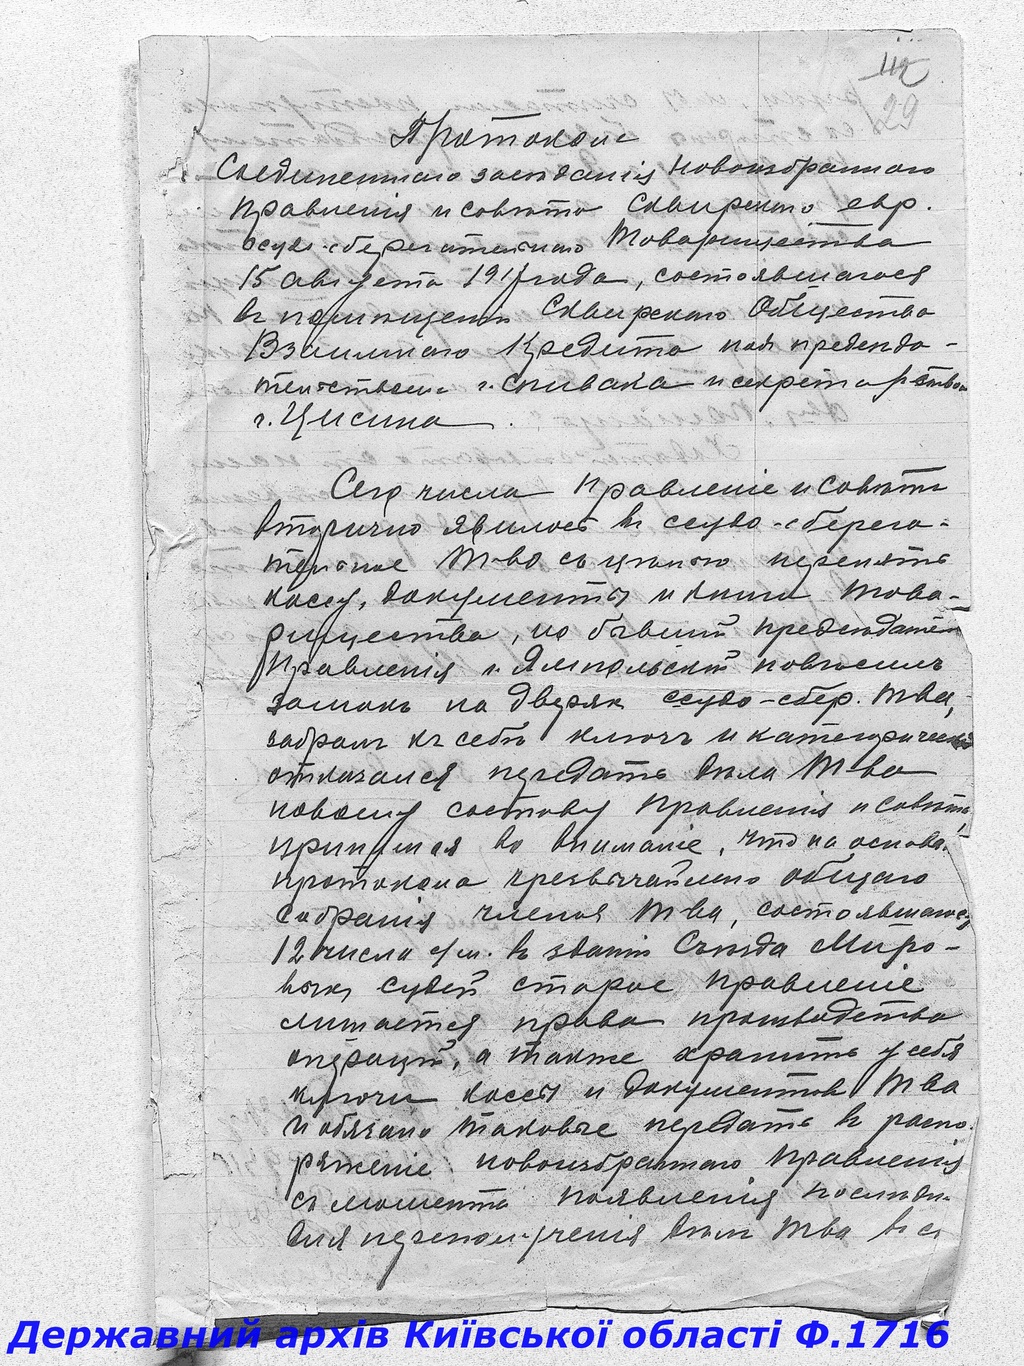 112
29
Протоколъ
Соединеннаго засѣданія Новоизбраннаго
Правленія и совѣта Сквирскаго евр.
ссудо-сберегательнаго Товарищества
15 августа 1917 года, состоявшагося
въ помѣщеніи Сквирскаго Общества
Взаимнаго Кредита подъ предсѣда-
тельствомъ г. Спивака и секретарствомъ
г. Цисина.
Сего числа Правленіе и Совѣтъ
вторично явилось въ ссудо-сберега-
тельное Т-во съ цѣлью перенять
кассу, документы и книги Това-
рищества, но бывшій предсѣдатель
Правленія г. Ямпольскій повѣсилъ
замокъ на дверяхъ ссудо-сбер. Т-ва,
забралъ къ себѣ ключъ и категорически
отказался передать дѣла Т-ва
новому составу Правленія и Совѣта,
принимая во вниманіе, что на основ.
протокола чрезвычайнаго общаго
собранія членовъ Т-ва, состоявшагося
12 числа с/м. въ зданіи Съѣзда Миро-
выхъ судей старое Правленіе
лишается права производства
операцій, а также хранить у себя
ключи кассы и документовъ Т-ва
и обязано таковые передать въ распо-
ряженіе новоизбраннаго Правленія
съ момента появленія послѣдн.
для дѣлъ Т-ва
Державний архів Київської області Ф.1716